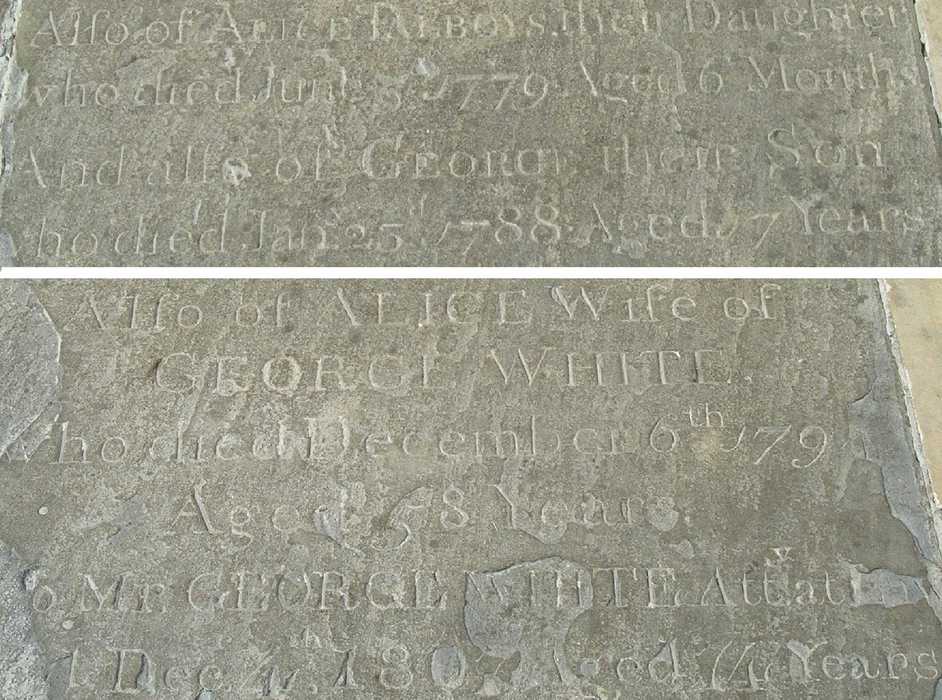 Alſo of ALICE TALBOYS their Daughter
who died June 8 1779 Aged 6 Months
And alſo of GEORGE their Son
who died Jan. 25th 1788 Aged 17 Years
Alſo of ALICE Wife of
GEORGE WHITE.
who died December 6th 179
Aged 58 Years
o Mr. GEORGE WHITE Atty at
Dec. 4th. 180 Aged 74 Years